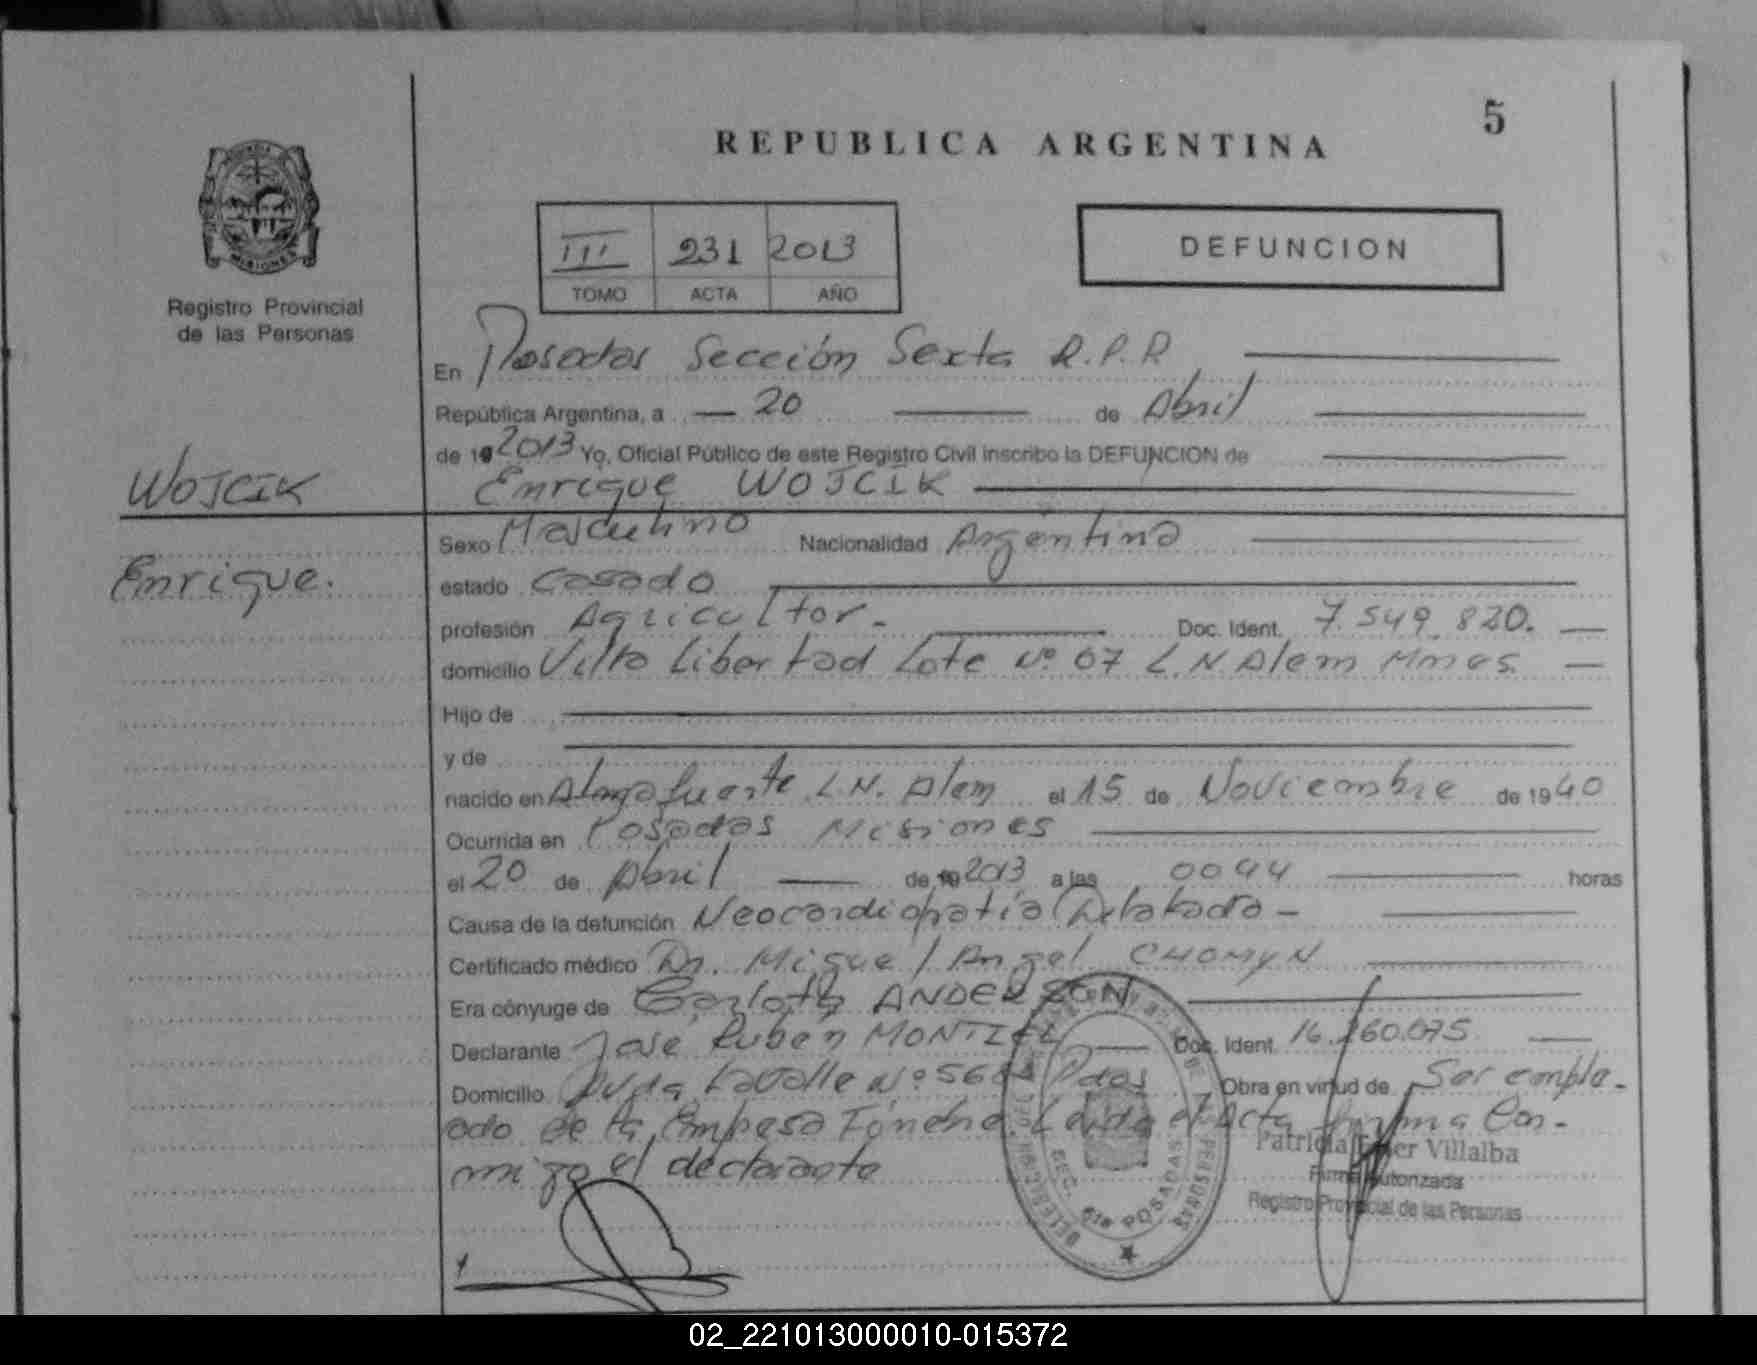 5
REPUBLICA ARGENTINA
MISIONES
Registro Provincial
de las Personas
III 231 2013
TOMO ACTA AÑO
DEFUNCION
En Posadas Sección Sexta R.P.P
República Argentina, a 20 de Abril
de 19 2013 Yo, Oficial Público de este Registro Civil inscribo la DEFUNCION de
WOJCIK
Enrique WOJCIK
Enrique.
Sexo Masculino Nacionalidad Argentina
estado Casado
profesión Agricultor. Doc. Ident. 7.549.820.
domicilio Villa Libertad Lote Nº 67 L.N Alem Mnes
Hijo de
y de
nacido en Almafuerte L.N. Alem el 15 de Noviembre de 1940
Ocurrida en Posadas Misiones
el 20 de Abril de 19 2013 a las 0044 horas
Causa de la defunción Neocardiopatía Dilatada
Certificado médico Dr. Miguel Angel CHOMYN
Era cónyuge de Carlota ANDERZON
Declarante José Rubén MONTIEL Doc. Ident. 16.260.075
Domicilio Avda Lavalle Nº Pdas Obra en virtud de Ser emple-
ado de la Empresa Fúnebre. Leída el Acta firma Con-
migo el declarante
Patricia Villalba
Firma Autorizada
Registro Provincial de las Personas
SEC. 6ta POSADAS
02_221013000010-015372